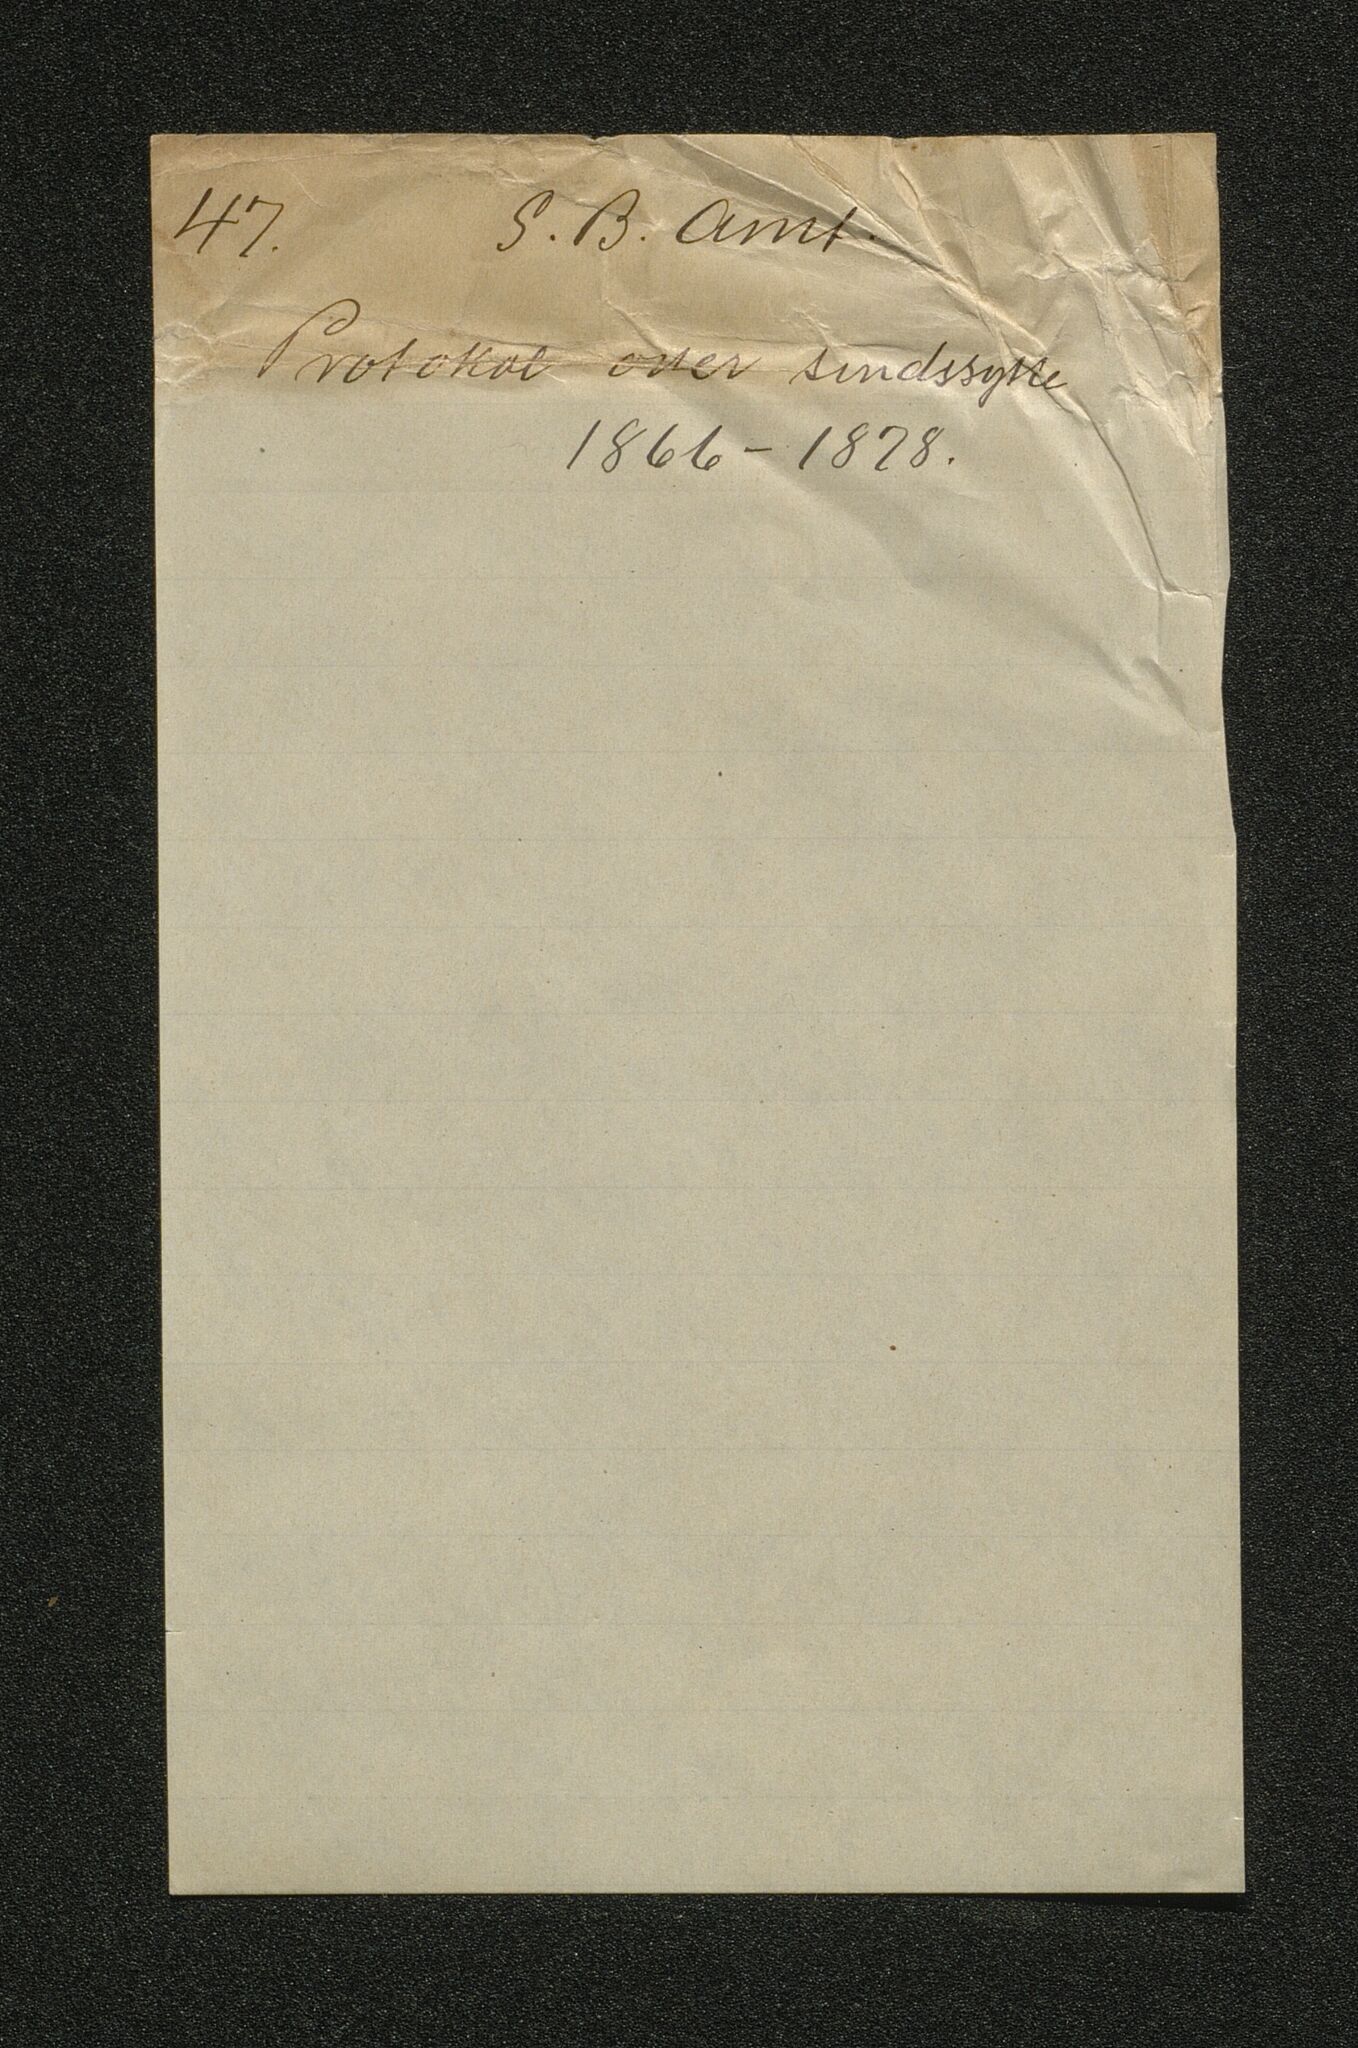 47. S. B. Amt.
Protokol over sindssyke
1866-1878.